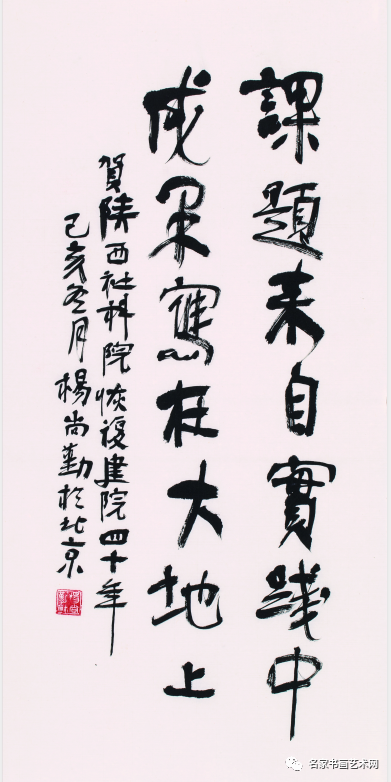 課題来自實踐中
成果寫在大地上
賀陕西社科院恢復建院四十年
己亥冬月楊尚勤於北京
名家书画艺术网